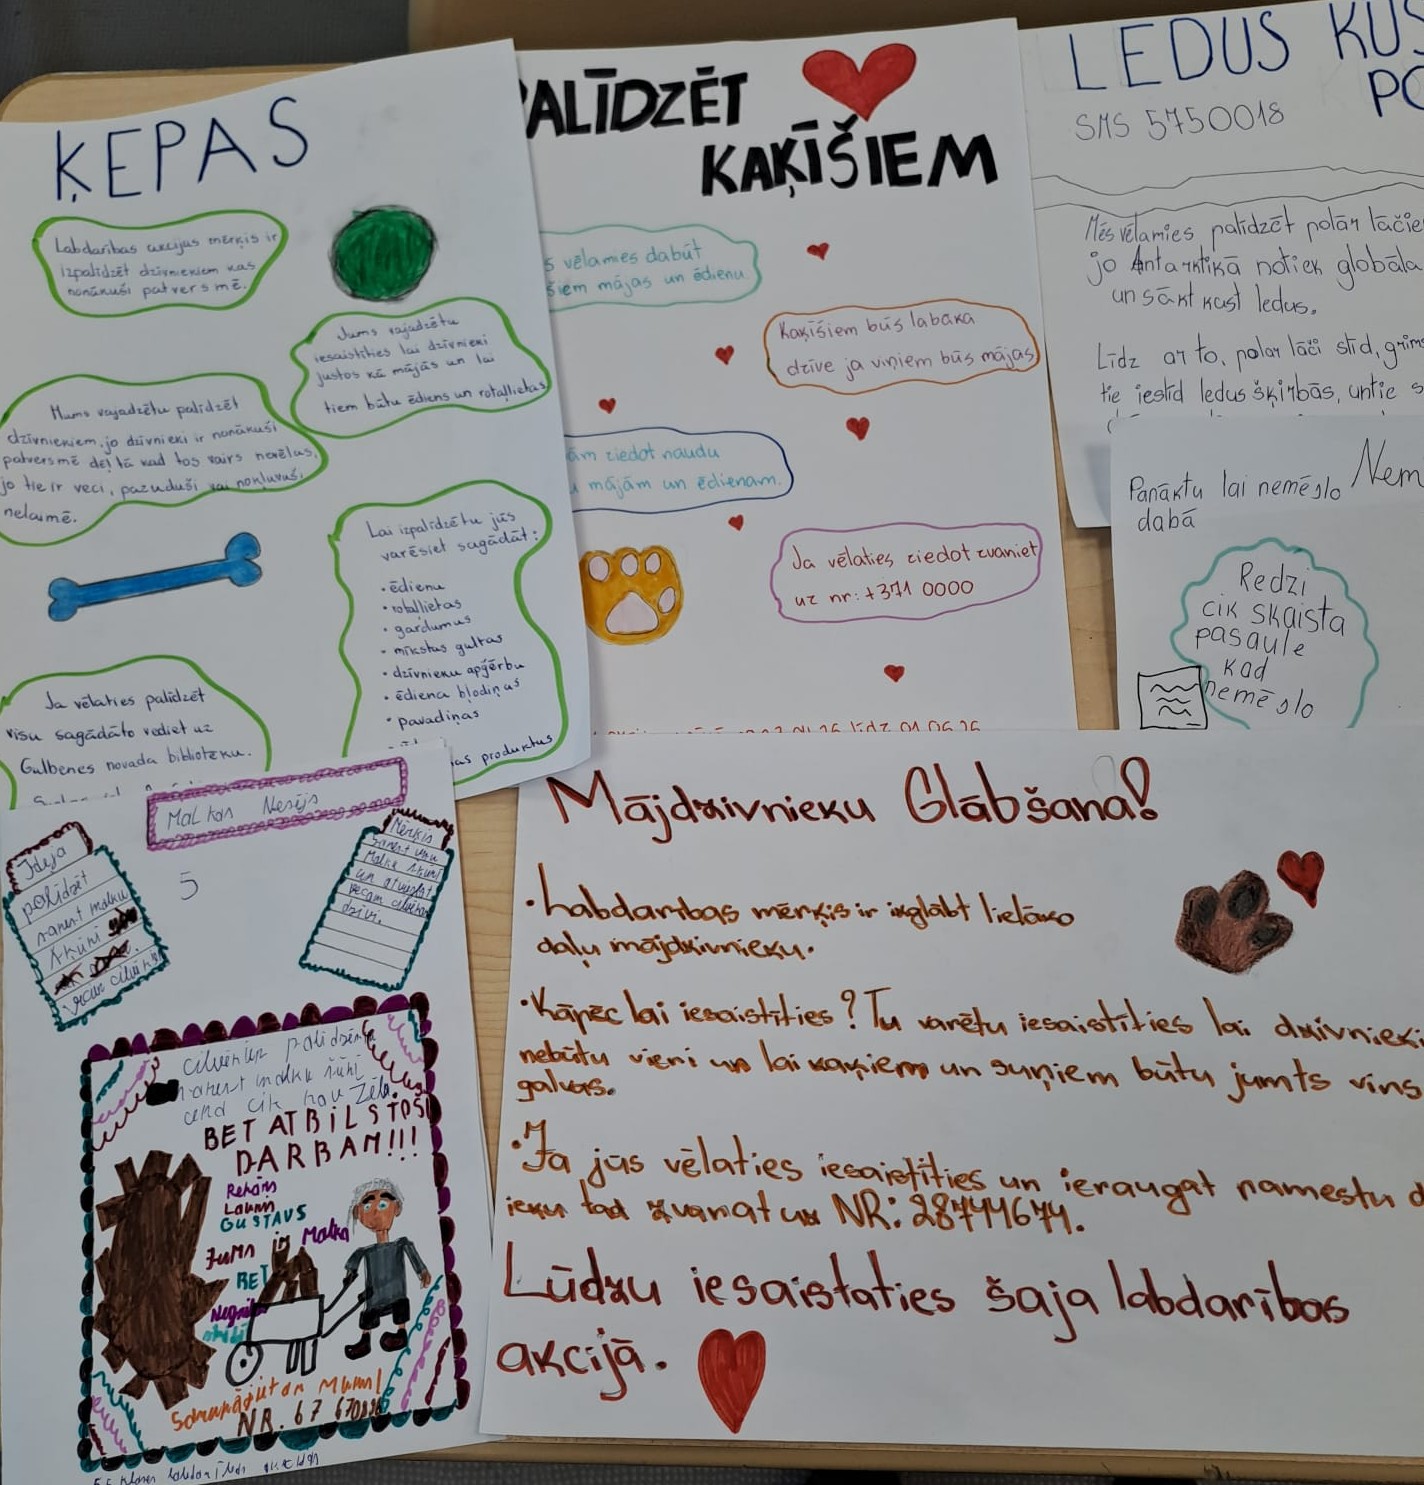 ĶEPAS
Labdarības akcijas mērķis ir
izpalīdzēt dzīvniekiem kas
nonākuši patversmē.
Jums vajadzētu
iesaistīties lai dzīvnieki
justos kā mājās un lai
tiem būtu ēdiens un rotaļlietas
Mums vajadzētu palīdzēt
dzīvniekiem, jo dzīvnieki ir nonākuši
patversmē dēļ tā kad tos vairs nevēlas,
jo tie ir veci, pazuduši vai nokļuvuši
nelaimē.
Lai izpalīdzētu jūs
varēsiet sagādāt:
• ēdienu
• rotaļlietas
• gardumus
• mīkstas gultas
• dzīvnieku apģērbu
• ēdiena bļodiņas
• pavadiņas
produktus
Ja vēlaties palīdzēt
visu sagādāto vediet uz
Gulbenes novada bibliotēku.
PALĪDZĒT
KAĶĪŠIEM
s vēlamies dabūt
šiem mājas un ēdienu
Kaķīšiem būs labāka
dzīve ja viņiem būs mājas
ām ziedot naudu
u mājām un ēdienam.
Ja vēlaties ziedot zvaniet
uz nr: +371 0000
līdz 01.06.26
LEDUS KUS
PO
SMS 5750018
Mēs vēlamies palīdzēt polār lāčie
jo Antarktikā notiek globāla
un sākt kust ledus.
Līdz ar to, polar lāči slīd, grims
tie iestrēd ledus šķirbās, un tie s
Panāktu lai nemēslo
dabā
Nem
Redzi
cik skaista
pasaule
kad
nemēslo
Malkas Nesējs
5
Ideja
palīdzēt
sanest malku
šķūnī
vecam cilvēkam
Mērķis
Sanest visu
Malku šķūnī
un atvieglot
vecam cilvēkam
dzīvi.
cilvēkiem palīdzēt
sanest malku šūnī
cena cik nav žēl.
BET ATBILSTOŠI
DARBAM!!!
GUSTAVS
Malka
BET
Sazinājietan Mums!
NR. 67
Mājdzīvnieku Glābšana!
• Labdarības mērķis ir izglābt lielāko
daļu mājdzīvnieku.
• Kāpēc lai iesaistīties? Tu varētu iesaistīties lai dzīvnieki
nebūtu vieni un lai kaķiem un suņiem būtu jumts virs
galvas.
• Ja jūs vēlaties iesaistīties un ieraugat pamestu d
ieku tad zvanat uz NR: 28744674.
Lūdzu iesaistaties šaja labdarības
akcijā.